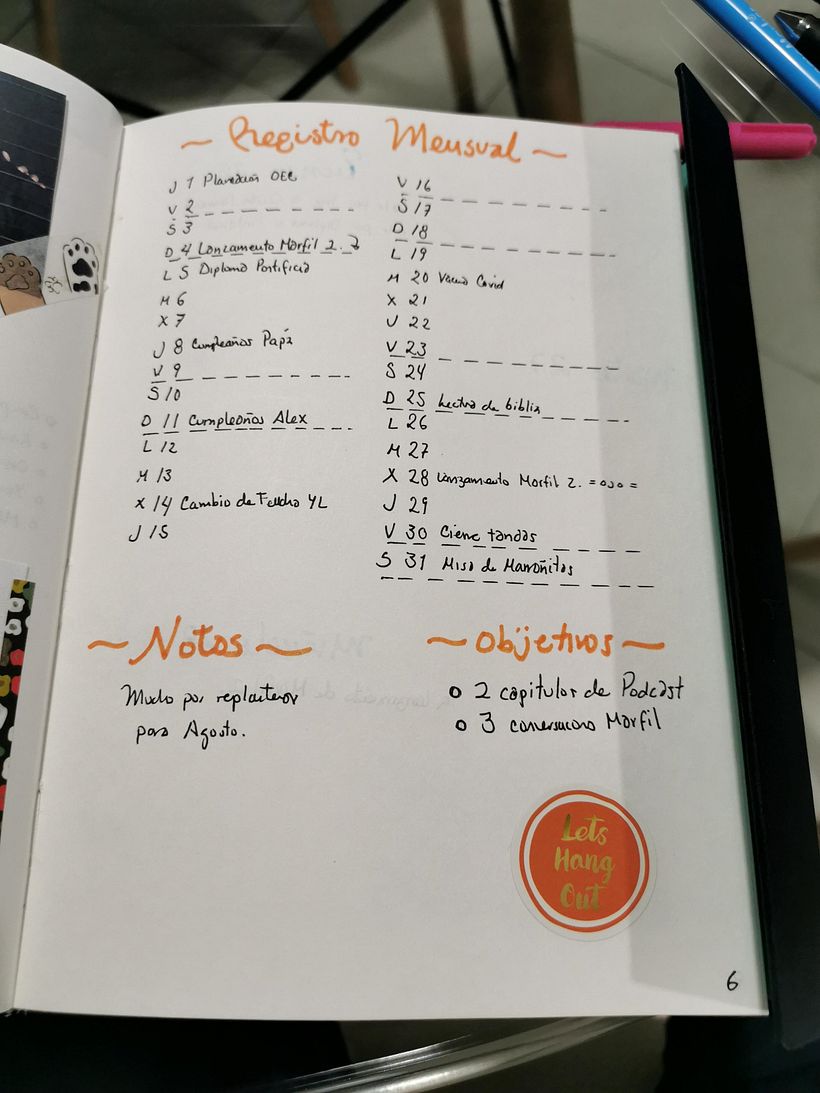 ~ Registro Mensual ~
J 1 Planeación OEC
V 2
S 3
D 4 Lanzamento Morfil 2.
L 5 Diploma Pontificia
M 6
X 7
J 8 Cumpleaños Papá
V 9
S 10
D 11 Cumpleaños Alex
L 12
M 13
X 14 Cambio de Fecha YL
J 15
V 16
S 17
D 18
L 19
M 20 Vacuna Covid
X 21
J 22
V 23
S 24
D 25 Lectura de biblia
L 26
M 27
X 28 Lanzamento Morfil 2. = ojo =
J 29
V 30 Cierre tandas
S 31 Misa de Marroñitas
~ Notas ~
Mucho por replantear
para Agosto.
~ Objetivos ~
o 2 capitulos de Podcast
o 3 Morfil
Lets
Hang
Out
6